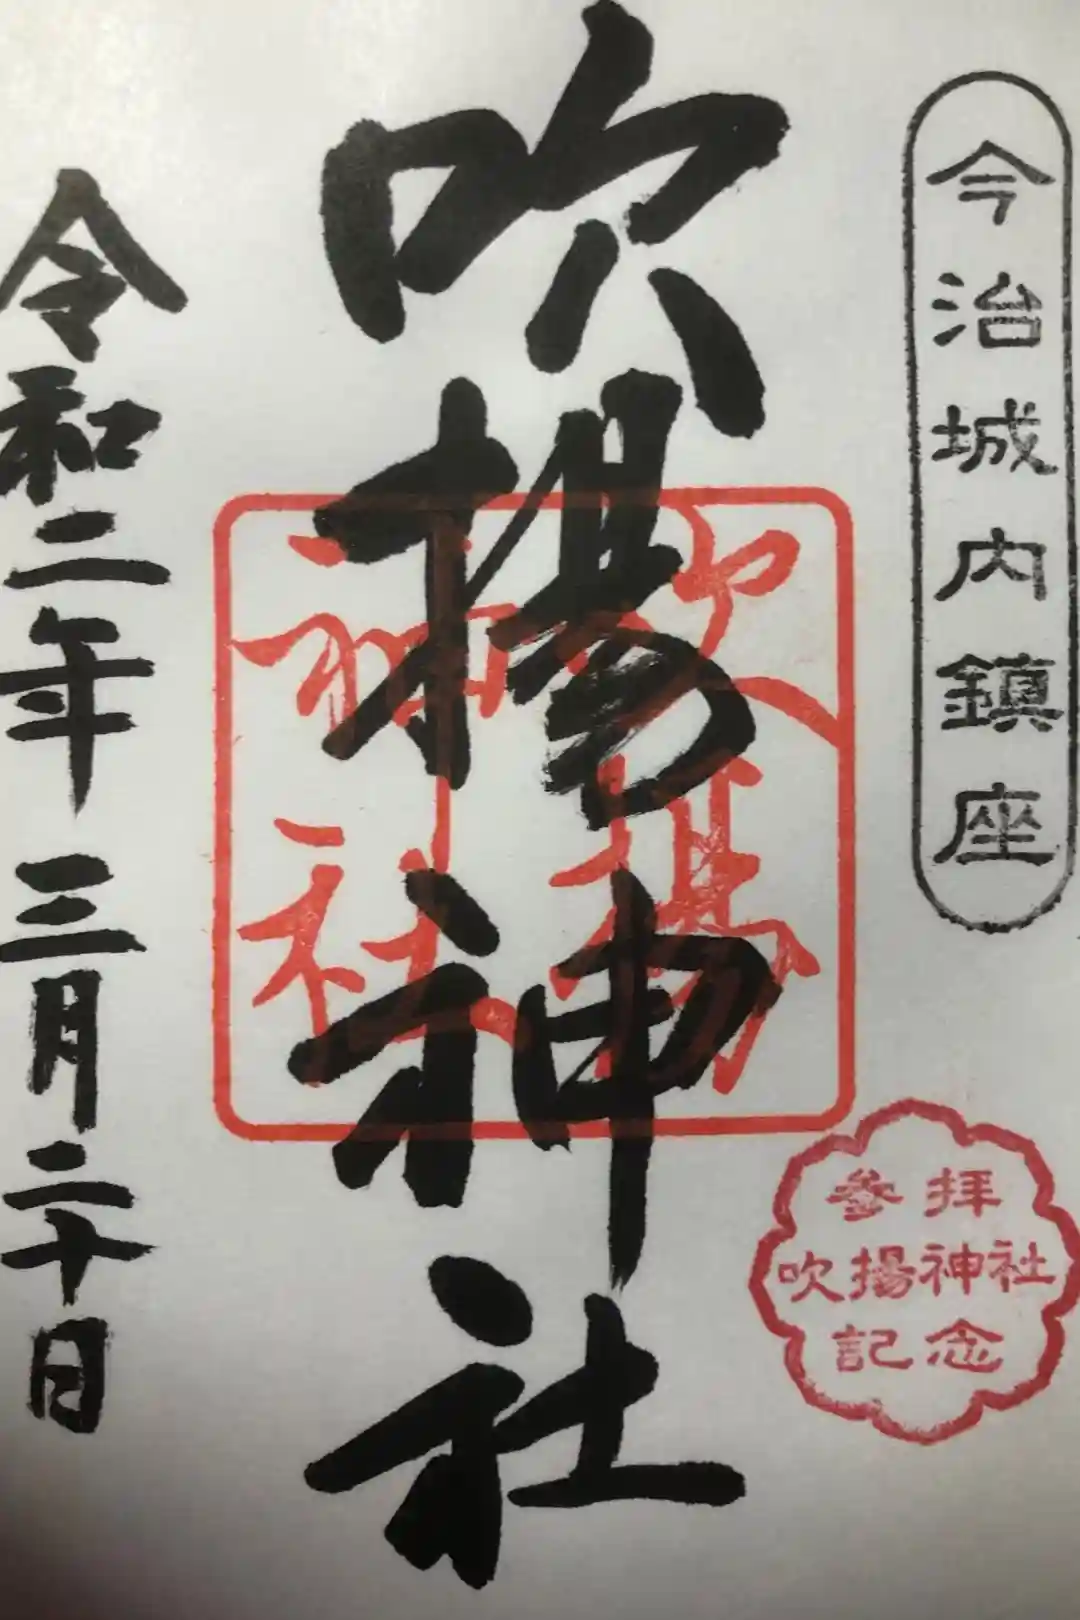 今治城内鎮座
吹揚神社
吹揚
神社
令和二年三月二十日
参拝
吹揚神社
記念